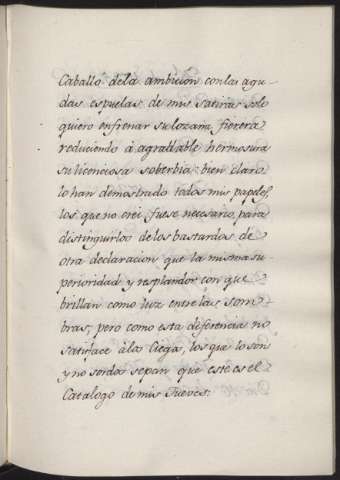 Caballo dela ambicion con las agu-
das espuelas de mis satiras solo
quiero enfrenar su lozana fiereza
reduciendo à agraddable hermosura
su licenciosa soberbia: bien claro
lo han demostrado todos mis papeles,
los que no crei fuese necesario, para
distinguirlos de los bastardos de
otra declaracion que la misma su-
perioridad y resplandor con que
brillan como luz entre las som-
bras, pero como esta diferencia no
satisface àlos Ciegos, los que lo son
y no sordos sepan que este es el
Catalogo de mis Jueves.